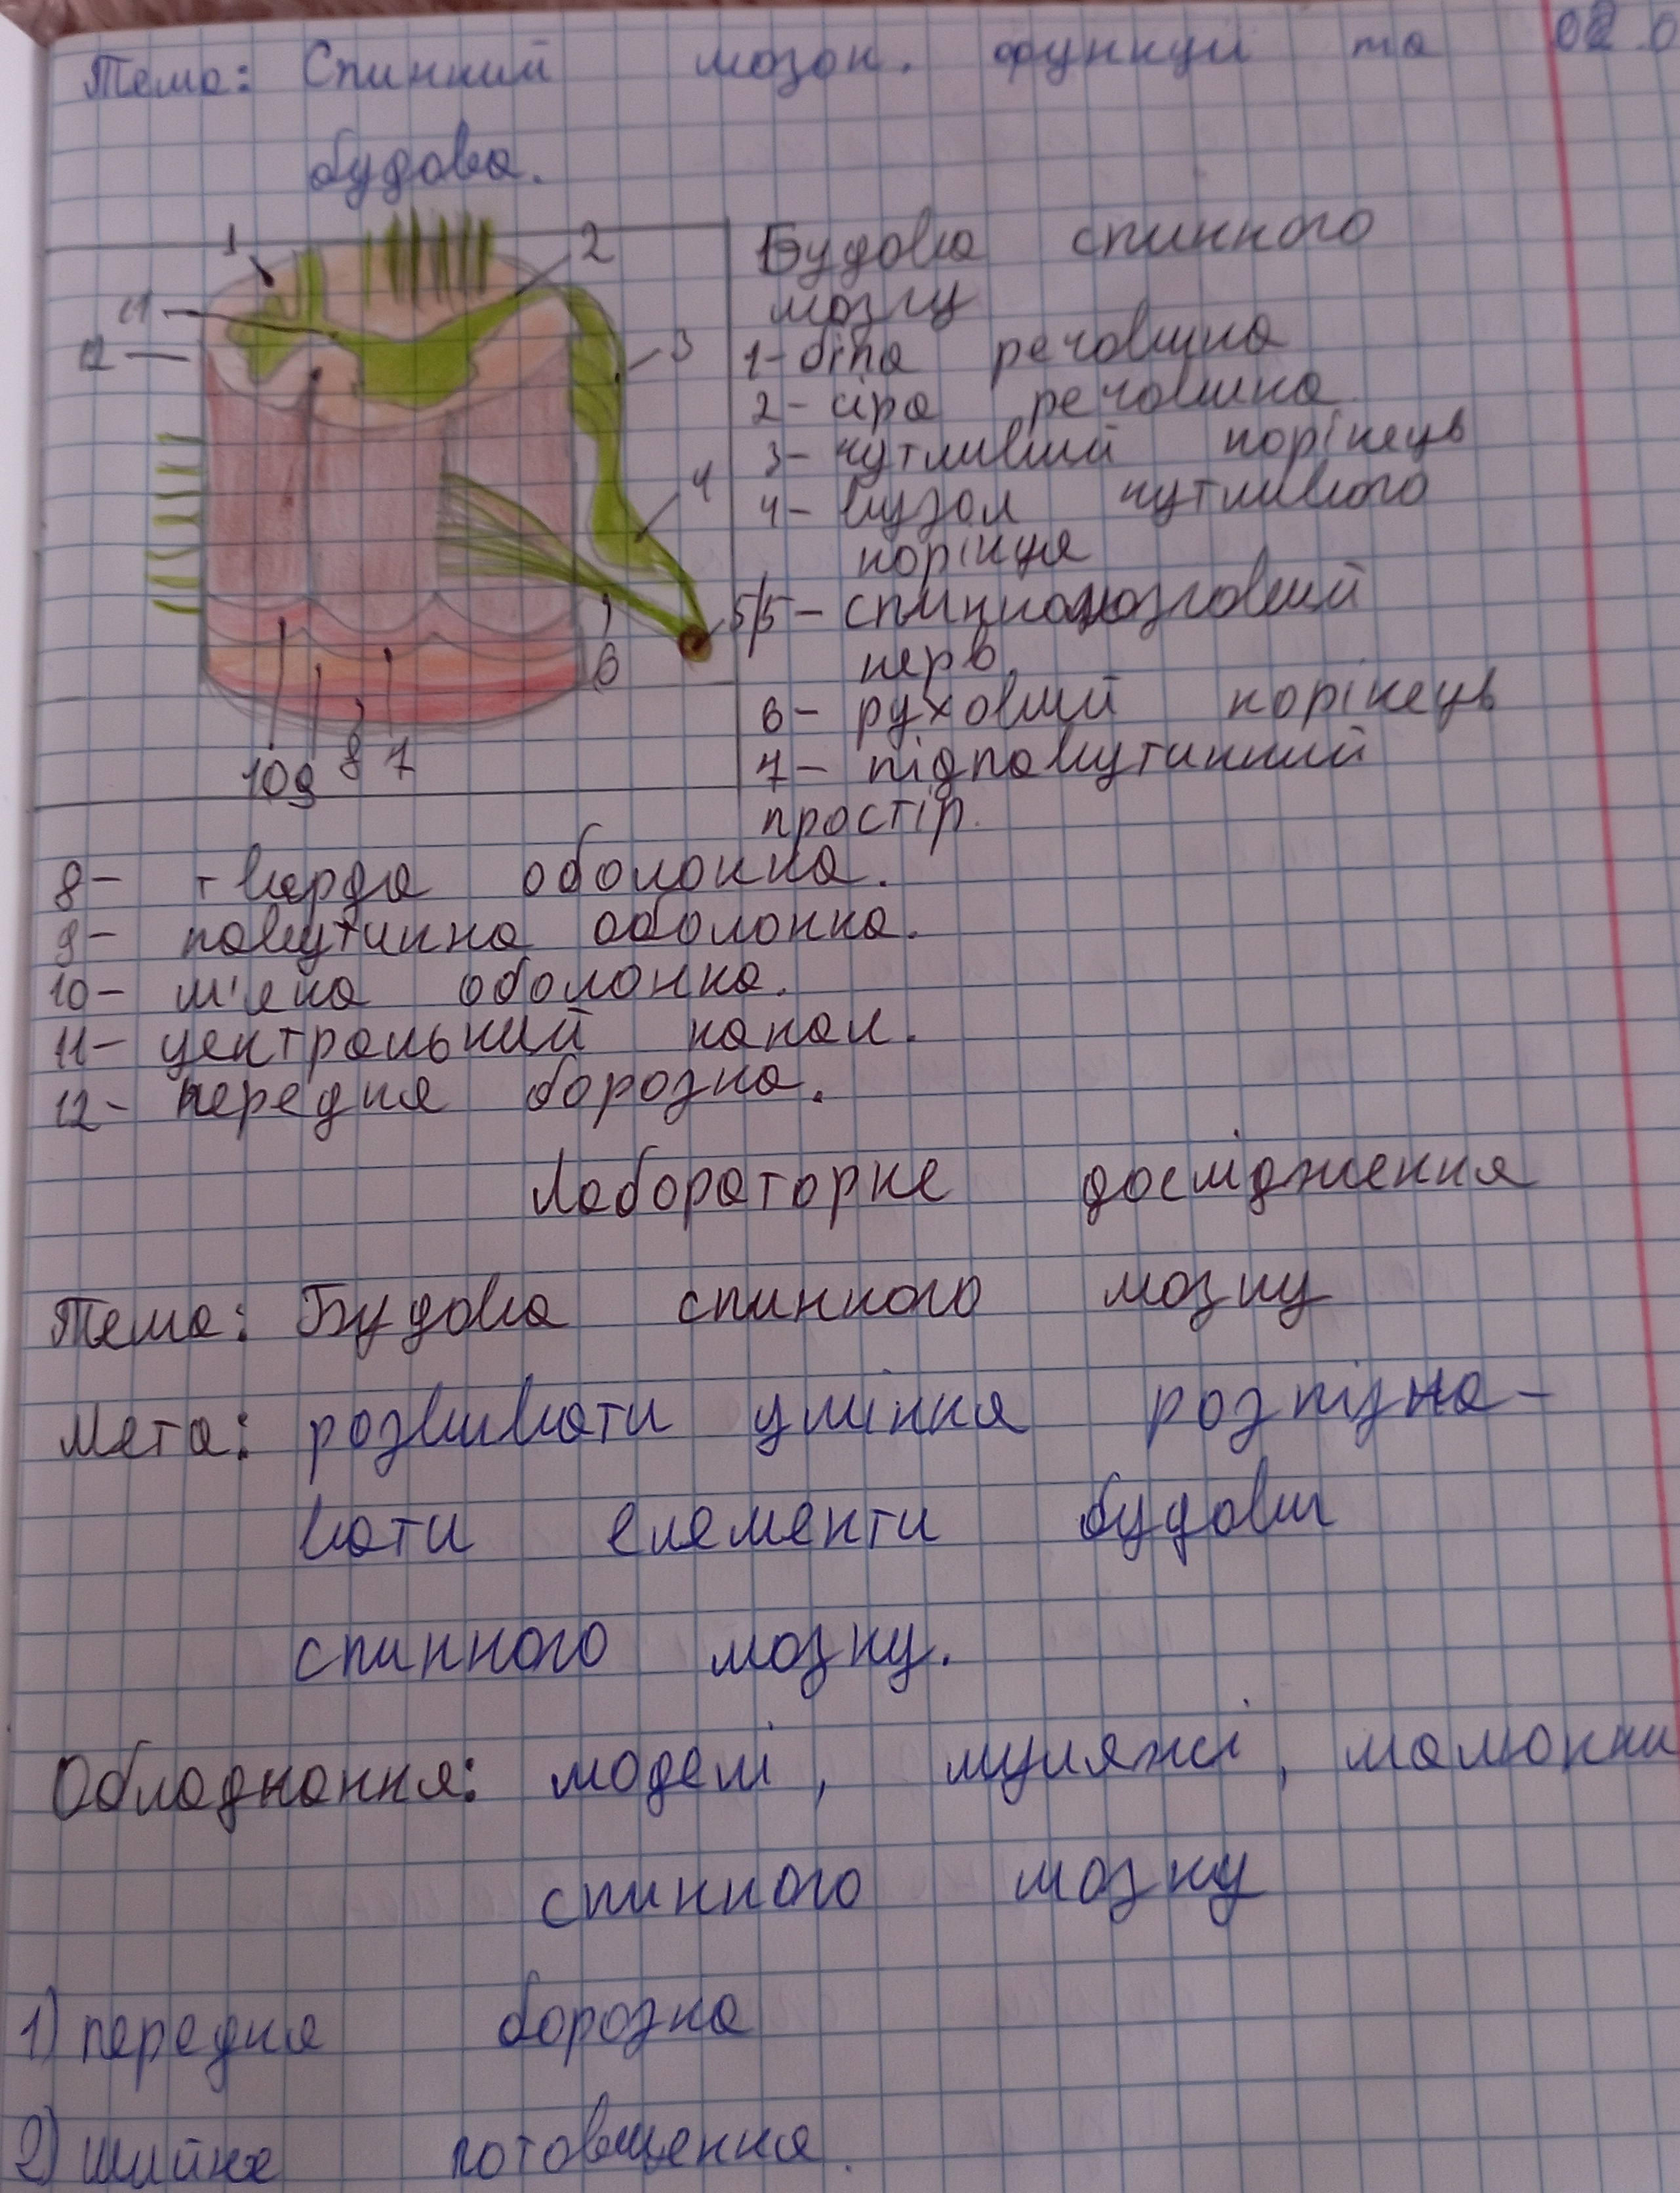 Тема: Спинний мозок. функції та 02.0
будова.
1
2
11
12
3
4
5
6
10 9 8 7
Будова спинного
мозку
1- біла речовина
2- сіра речовина
3- чутливий корінець
4- вузол чутливого
корінця
5- спинномозговий
нерв.
6- руховий корінець
7- підпавутинний
простір.
8- тверда оболонка.
9- павутинна оболонка.
10- м'яка оболонка.
11- центральний канал.
12- передня борозна.
Лабораторне дослідження
Тема: Будова спинного мозку
Мета: розвивати уміння розпізна-
вати елементи будови
спинного мозку.
Обладнання: моделі, муляжі, малюнки
спинного мозку
1) передня борозна
2) шийне потовщення.